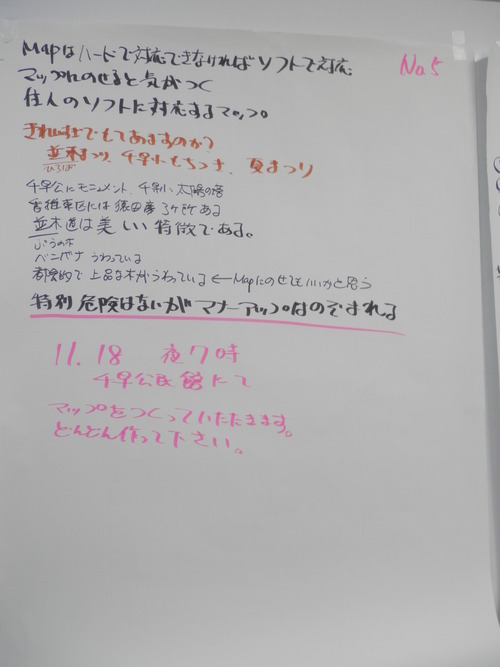 Mapはハードで対応できなければソフトで対応
No.5
マップにのせると気がつく
住人のソフトに対応するマップ。
並木まつり、千早小もちつき、夏まつり
ひろば
千早公にモニュメント、千早小、太陽の塔
香椎車区には猿田彦3ヶ所ある
並木道は美しい特徴である。
ぶうの木
ベニバナ うわっている
都会的で上品な木がうわっている ← Mapにのせてもいいかと思う
特別危険はないが マナーアップはのぞまれる
11.18 夜7時
千早公民館にて
マップをつくっていただきます。
どんどん作って下さい。